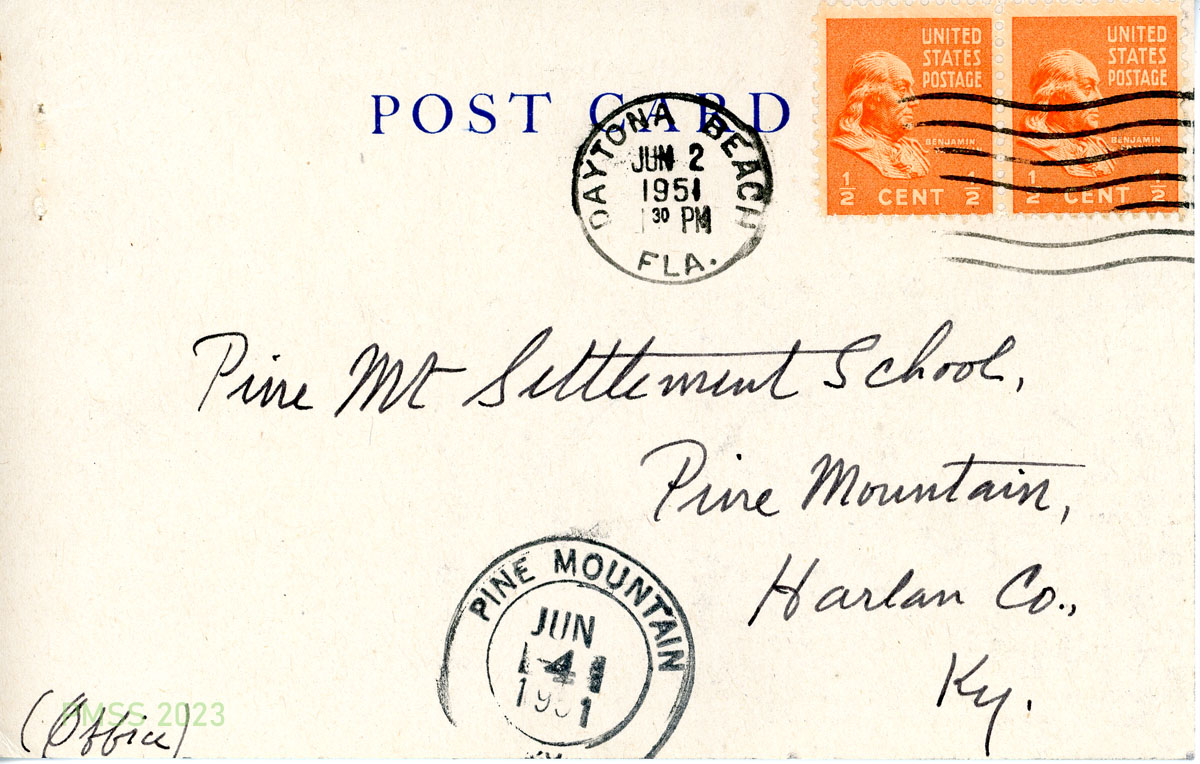 POST CARD
UNITED STATES POSTAGE
BENJAMIN
1/2 CENT 1/2
UNITED STATES POSTAGE
BENJAMIN
1/2 CENT 1/2
DAYTONA BEACH
JUN 2
1951
1 30 PM
FLA.
Pine Mt Settlement School,
Pine Mountain,
Harlan Co.,
Ky.
PINE MOUNTAIN
JUN
4
1951
KY
(Office)
PMSS 2023